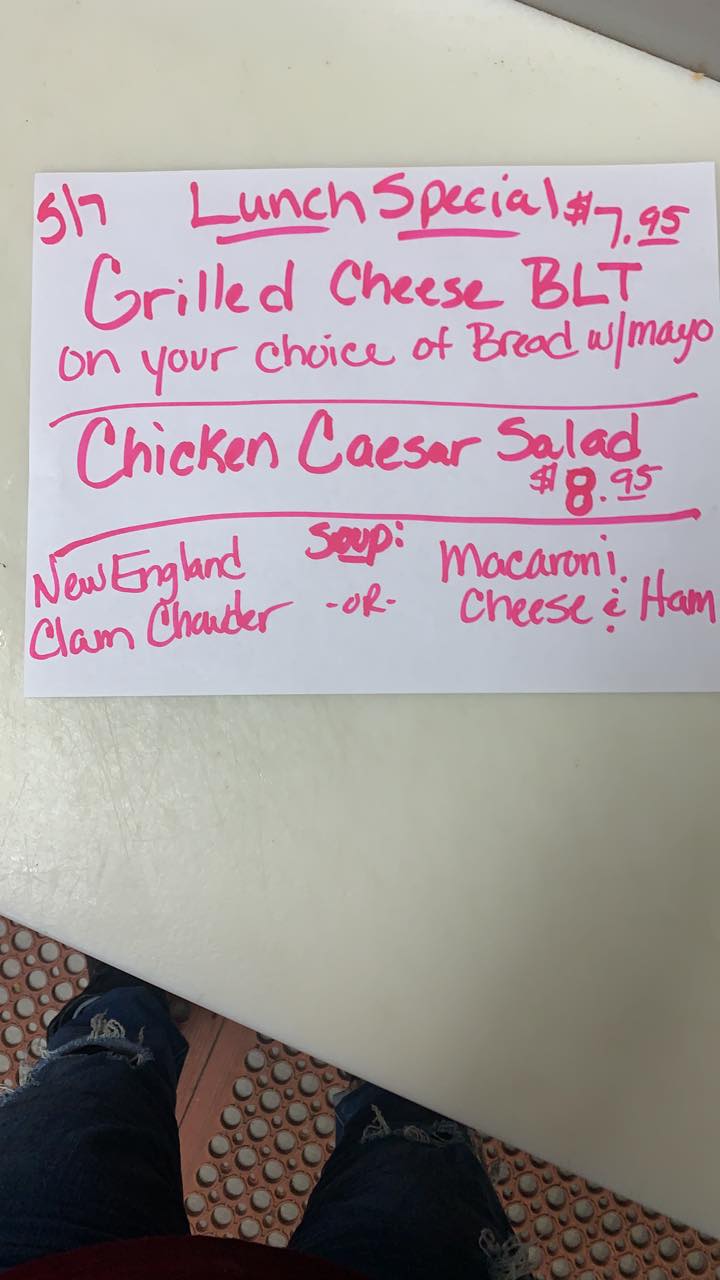 5/7 Lunch Special $7.95
Grilled Cheese BLT
on your choice of Bread w/mayo
Chicken Caesar Salad
$8.95
Soup:
New England
Clam Chowder
-OR-
Macaroni
Cheese & Ham